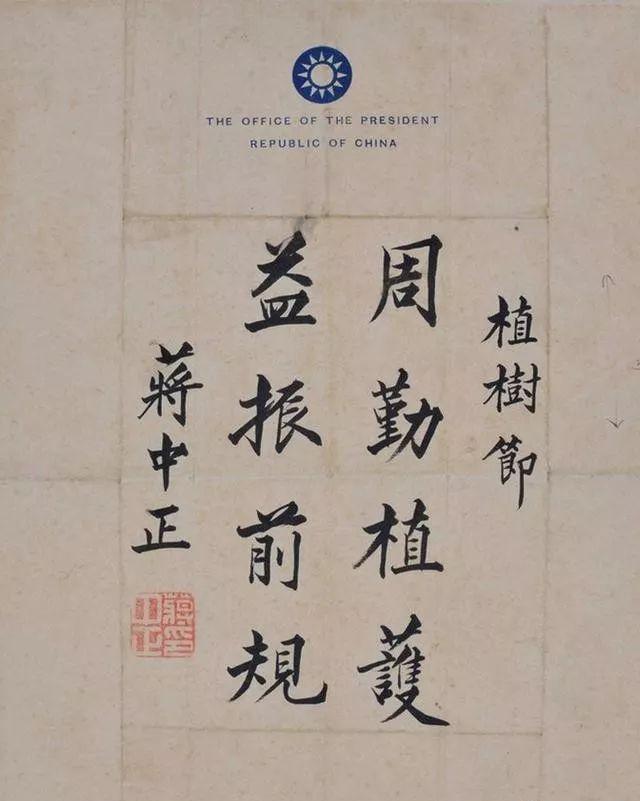 THE OFFICE OF THE PRESIDENT
REPUBLIC OF CHINA
植樹節
周勤植護
益振前規
蔣中正
蔣中正印